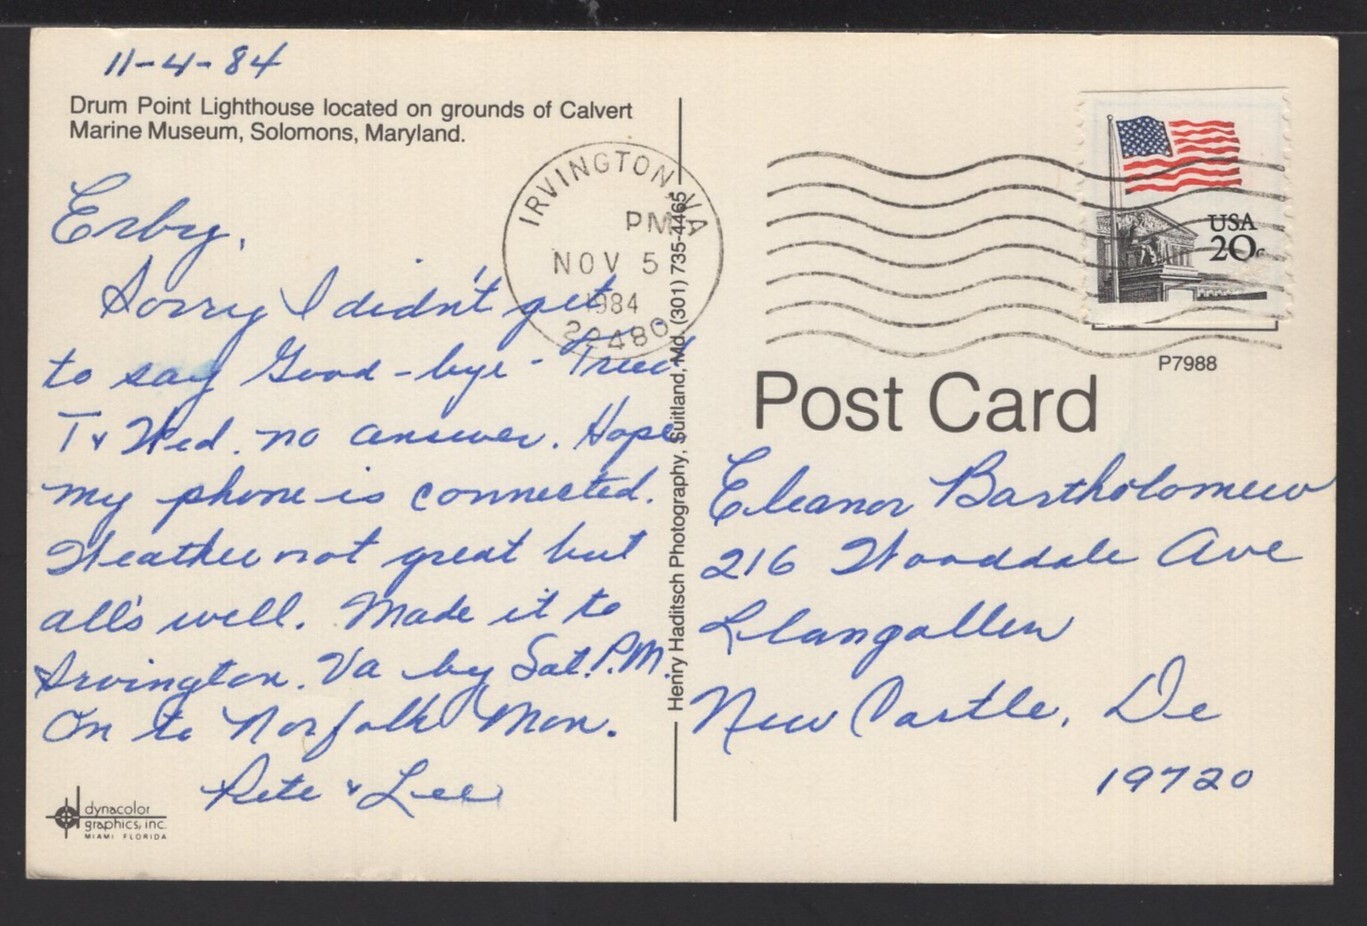 11-4-84
Drum Point Lighthouse located on grounds of Calvert
Marine Museum, Solomons, Maryland.
Erby,
Sorry I didn't get
to say Good-bye - Tried
T & Wed. no answer. Hope
my phone is connected.
Weather not great but
all's well. Made it to
Irvington. Va by Sat. P.M.
On to Norfolk Mon.
Pete & Lee
dynacolor
graphics, inc.
MIAMI FLORIDA
IRVINGTON VA
PM
NOV 5
1984
22480
Henry Haditsch Photography, Suitland, Md. (301) 735-4465
USA
20c
P7988
Post Card
Eleanor Bartholomew
216 Wooddale Ave
Llangollen
New Castle, De
19720